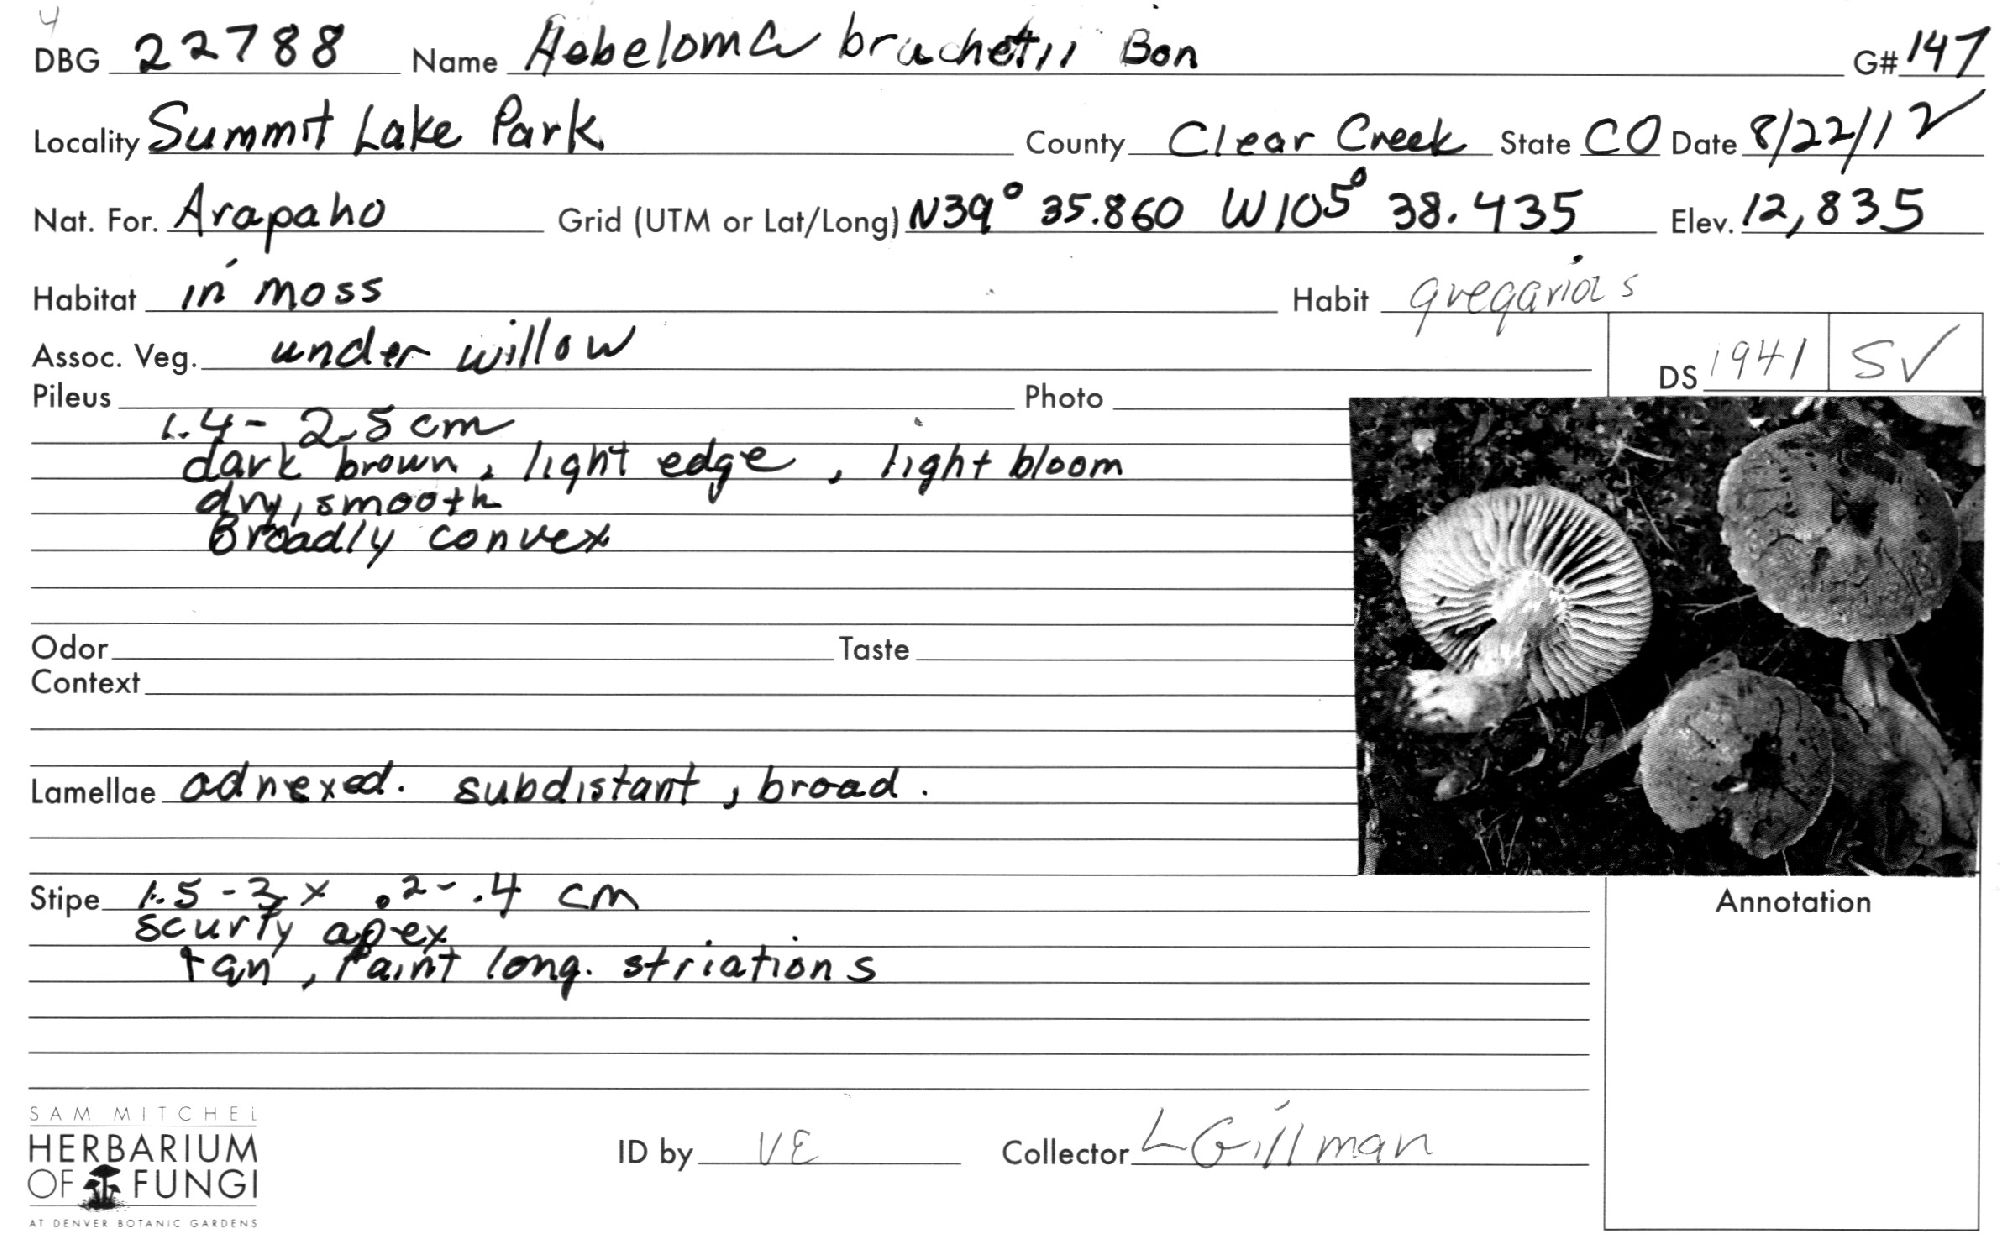 4
DBG 22788 Name Hebeloma bruchetii Bon G# 147
Locality Summit Lake Park County Clear Creek State CO Date 8/22/12
Nat. For. Arapaho Grid (UTM or Lat/Long) N39° 35.860 W105° 38.435 Elev. 12,835
Habitat in moss Habit gregarios
Assoc. Veg. under willow DS 1941 SV
Pileus Photo
1.4 - 2.5 cm
dark brown, light edge, light bloom
dry, smooth
Broadly convex
Odor Taste
Context
Lamellae adnexed. subdistant, broad.
Stipe 1.5 - 3 x .2 - .4 cm
scurfy apex
tan, faint long. striations
Annotation
SAM MITCHEL
HERBARIUM
OF FUNGI
AT DENVER BOTANIC GARDENS
ID by VE Collector L Gillman